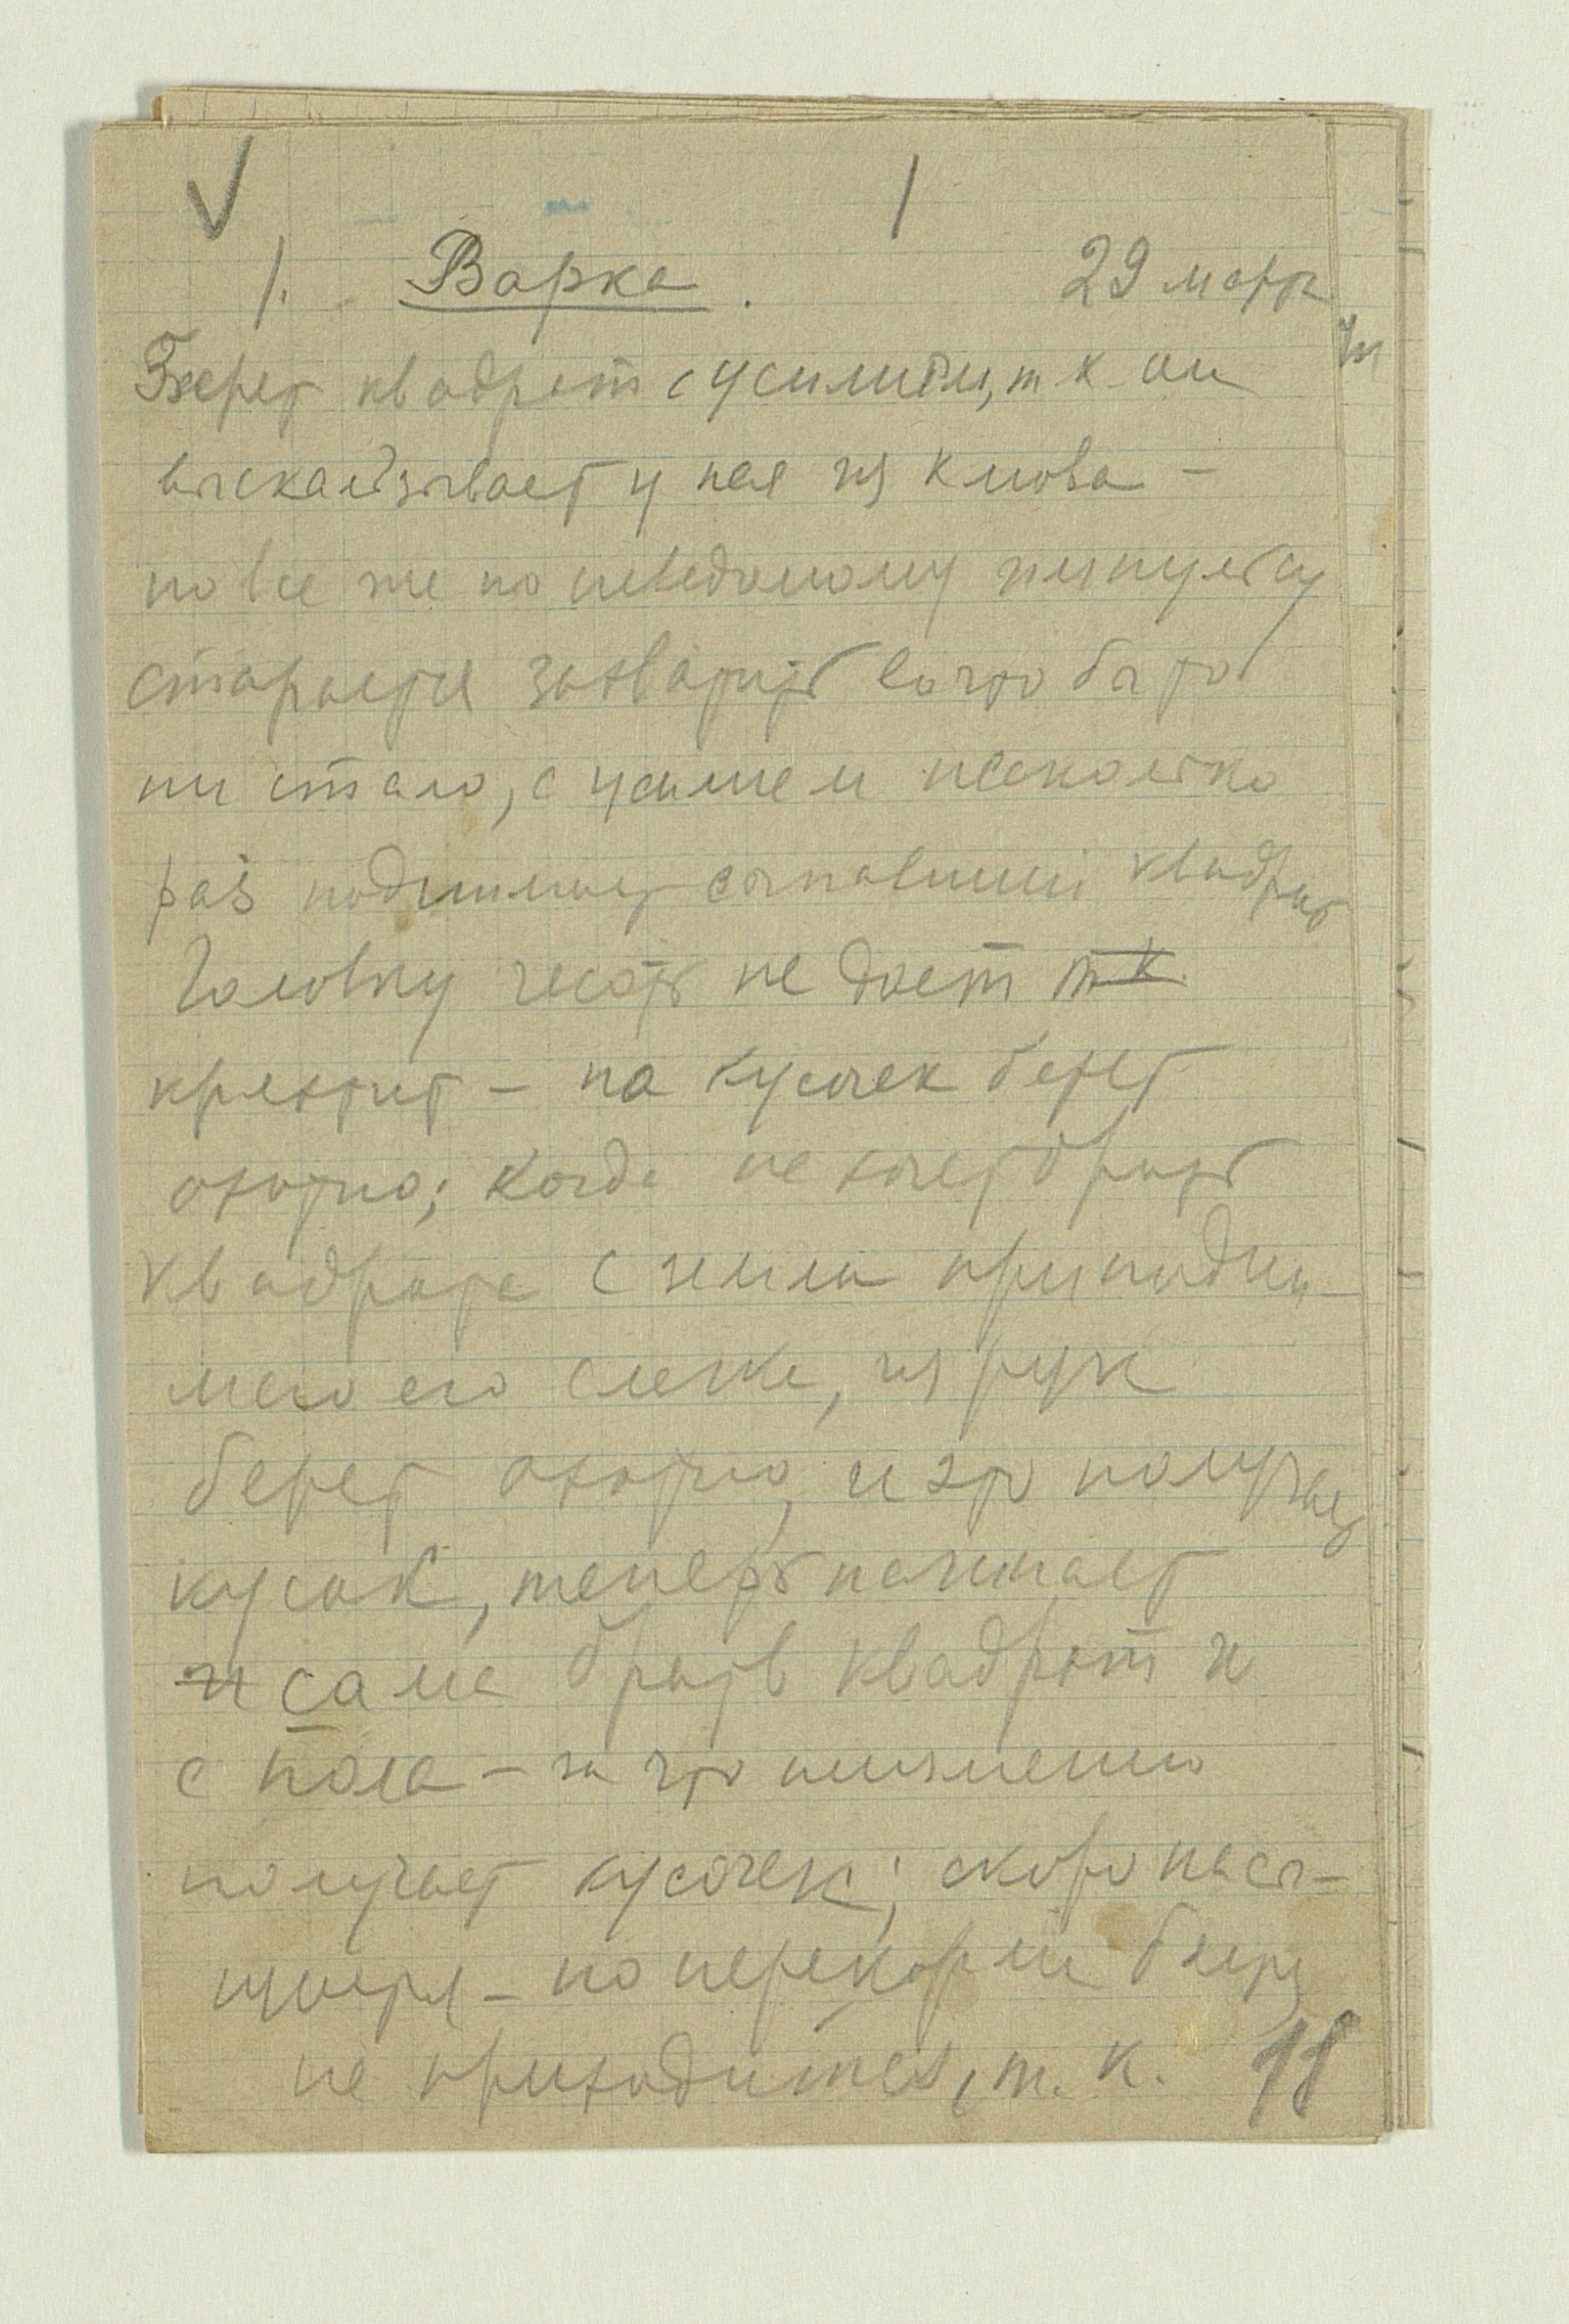 1
1. Варка. 29 марта
Берет квадрат с усилием, т. к. он
выскальзывает у нея из клюва –
но все же по неведомому импульсу
старается захватить во что бы то
ни стало, с усилием несколько
раз поднимает квадрат
Головку чесать не дает т к.
кряхтит – на кусочек берет
охотно; когда не хочет брать
квадрата с земли приподни-
маю его слегка, из рук
берет охотно, и это получает
кусок, теперь начинает
и сама брать квадрат и
с пола – за что неизменно
получает кусочек; скоро насы-
щается – но перекорм
не приходится, т. к. 11